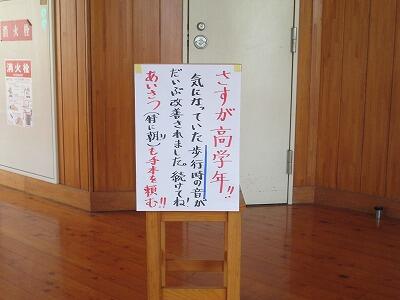 さすが高学年!!
気になっていた歩行時の音が
だいぶ改善されました。続けてね!
あいさつ(特に朝)も手本を頼む!!
消火栓
消火栓